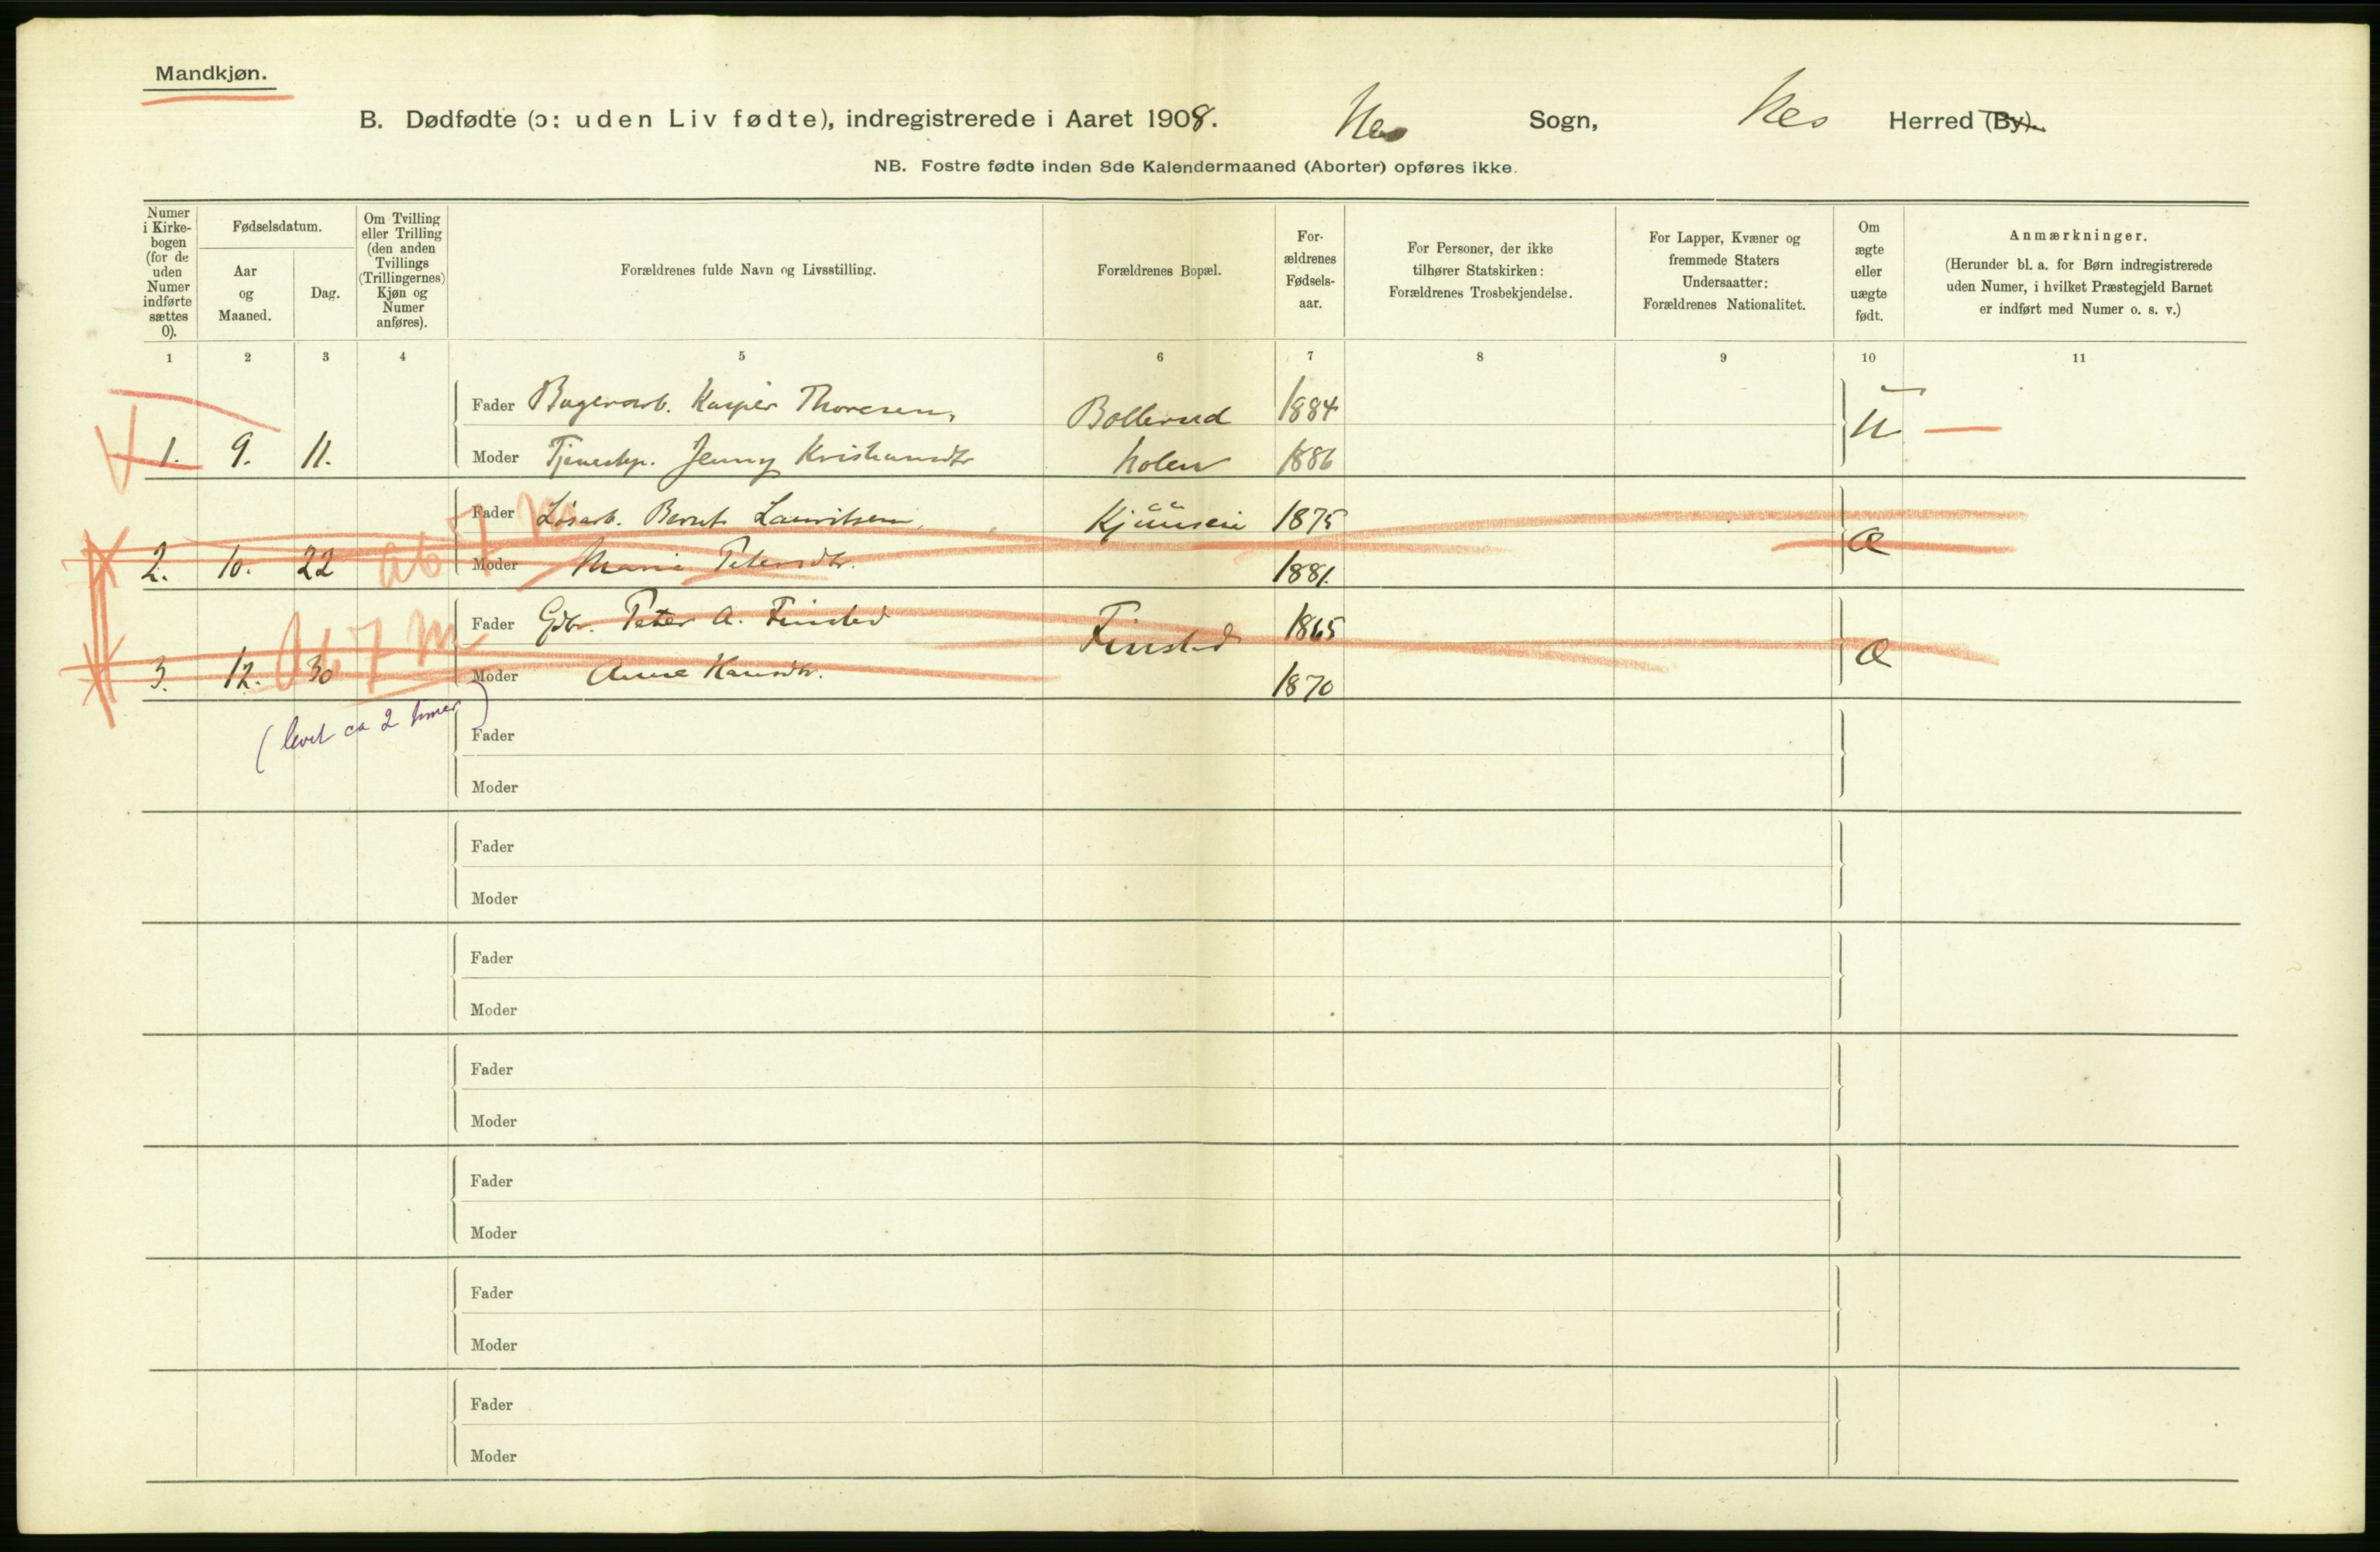 Mandkjøn.
B. Dødfødte (ɔ: uden Liv fødte), indregistrerede i Aaret 1908. Nes Sogn, Nes Herred (By).
NB. Fostre fødte inden 8de Kalendermaaned (Aborter) opføres ikke.
Numer
i Kirke-
bogen
(for de
uden
Numer
indførte
sættes
0).
Fødselsdatum.
Aar
og
Maaned.
Dag.
Om Tvilling
eller Trilling
(den anden
Tvillings
(Trillingernes)
Kjøn og
Numer
anføres).
Forældrenes fulde Navn og Livsstilling.
Forældrenes Bopæl.
For-
ældrenes
Fødsels-
aar.
For Personer, der ikke
tilhører Statskirken:
Forældrenes Trosbekjendelse.
For Lapper, Kvæner og
fremmede Staters
Undersaatter:
Forældrenes Nationalitet.
Om
ægte
eller
uægte
født.
Anmærkninger.
(Herunder bl. a. for Børn indregistrerede
uden Numer, i hvilket Præstegjeld Barnet
er indført med Numer o. s. v.)
1 2 3 4 5 6 7 8 9 10 11
Fader Bagerarb. Kasper Thoresen, Bollerud 1884
1. 9. 11. Moder Tjenestep. Jenny Kristiansdtr holen 1886 u
Fader Løsarb. Bernt Lauritsen, 1875
2. 10. 22 ab 7 m Moder Marie Petersdtr. 1881. æ
Fader Gbr. Peter A. Finsted Finsted 1865
3. 12. 30 ab 7 m Moder Anne Hansdtr. 1870 æ
(levet ca 2 timer)
Fader
Moder
Fader
Moder
Fader
Moder
Fader
Moder
Fader
Moder
Fader
Moder
Fader
Moder